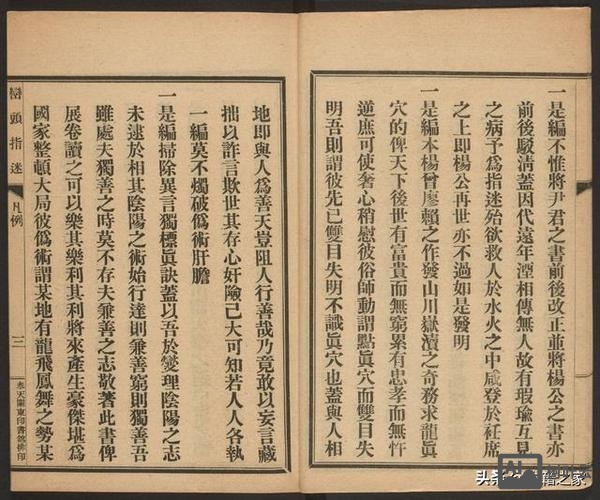 一是編不惟將尹君之書前後改正並將楊公之書亦
前後駁淸蓋因代遠年湮相傳無人故有瑕瑜互見
之病予爲指迷殆欲救人於水火之中咸登於袵席
之上即楊公再世亦不過如是發明
一是編本楊曾廖賴之作發山川嶽瀆之奇務求龍眞
穴的俾天下後世有富貴而無窮累有忠孝而無忤
逆庶可使奢心稍慰彼俗師動謂點眞穴而雙目失
明吾則謂彼先已雙目失明不識眞穴也蓋與人相
地即與人爲善天豈阻人行善哉乃竟敢以妄言藏
拙以詐言欺世其存心奸險已大可知若人人各執
一編莫不燭破僞術肝膽
一是編掃除異言獨標眞訣蓋以吾於燮理陰陽之志
未逮於相其陰陽之術始行達則兼善窮則獨善吾
雖處夫獨善之時莫不存夫兼善之志敬著此書俾
展卷讀之可以樂其樂利其利將來產生豪傑堪爲
國家整頓大局彼僞術謂某地有龍飛鳳舞之勢某
巒頭指迷
凡例
三
奉天關東印書館排印
头条
之家